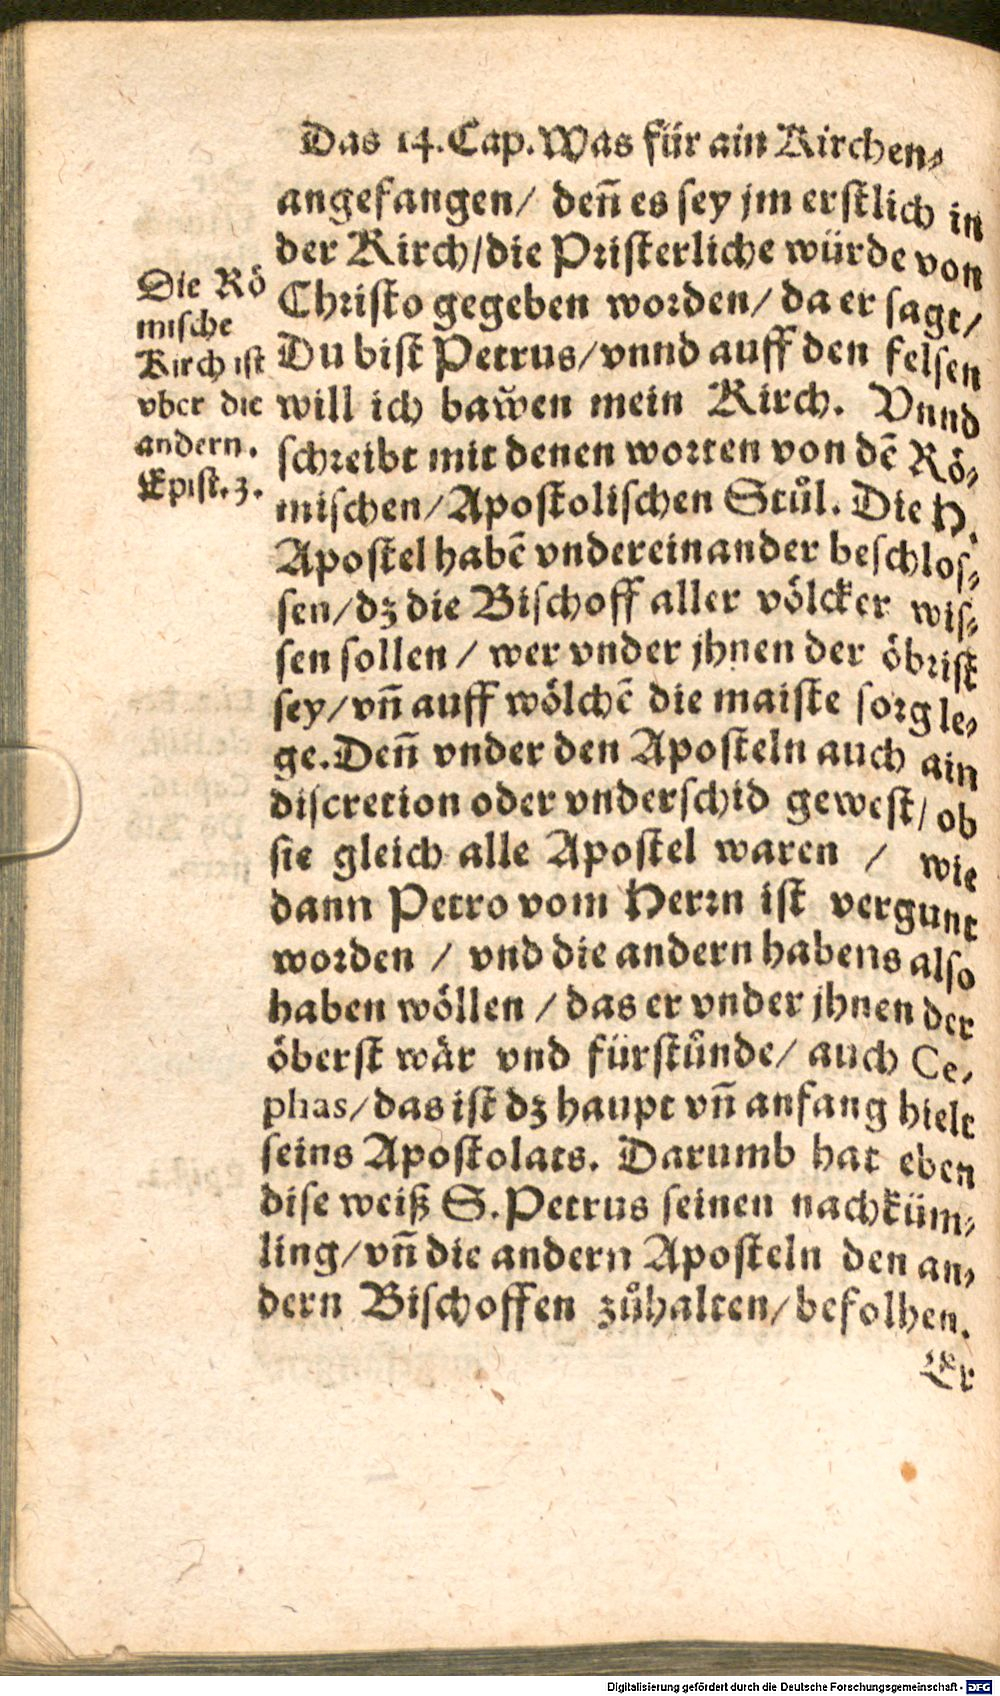 Das 14. Cap. Was für ain Kirchen⸗
angefangen/ deñ es sey jm erstlich in
der Kirch/die Pristerliche würde von
Christo gegeben worden/ da er sagt/
Du bist Petrus/vnnd auff den felsen
will ich baẅen mein Kirch. Vnnd
schreibt mit denen worten von dē Rö⸗
mischen/Apostolischen Stůl. Die H.
Apostel habē vndereinander beschlos⸗
sen/dz die Bischoff aller völcker wis⸗
sen sollen/ wer vnder jhnen der öbrist
sey/vñ auff wölchē die maiste sorg le⸗
ge. Deñ vnder den Aposteln auch ain
discretion oder vnderschid gewest/ ob
sie gleich alle Apostel waren / wie
dann Petro vom Herrn ist vergunt
worden / vnd die andern habens also
haben wöllen / das er vnder jhnen der
öberst wär vnd fürstůnde/ auch Ce⸗
phas/das ist dz haupt vñ anfang hielt
seins Apostolats. Darumb hat eben
dise weiß S. Petrus seinen nachküm⸗
ling/vñ die andern Aposteln den an⸗
dern Bischoffen zůhalten/befolhen.
Er
Die Rö
mische
Kirch ist
vber die
andern.
Epist. 3.
Digitalisierung gefördert durch die Deutsche Forschungsgemeinschaft - DFG